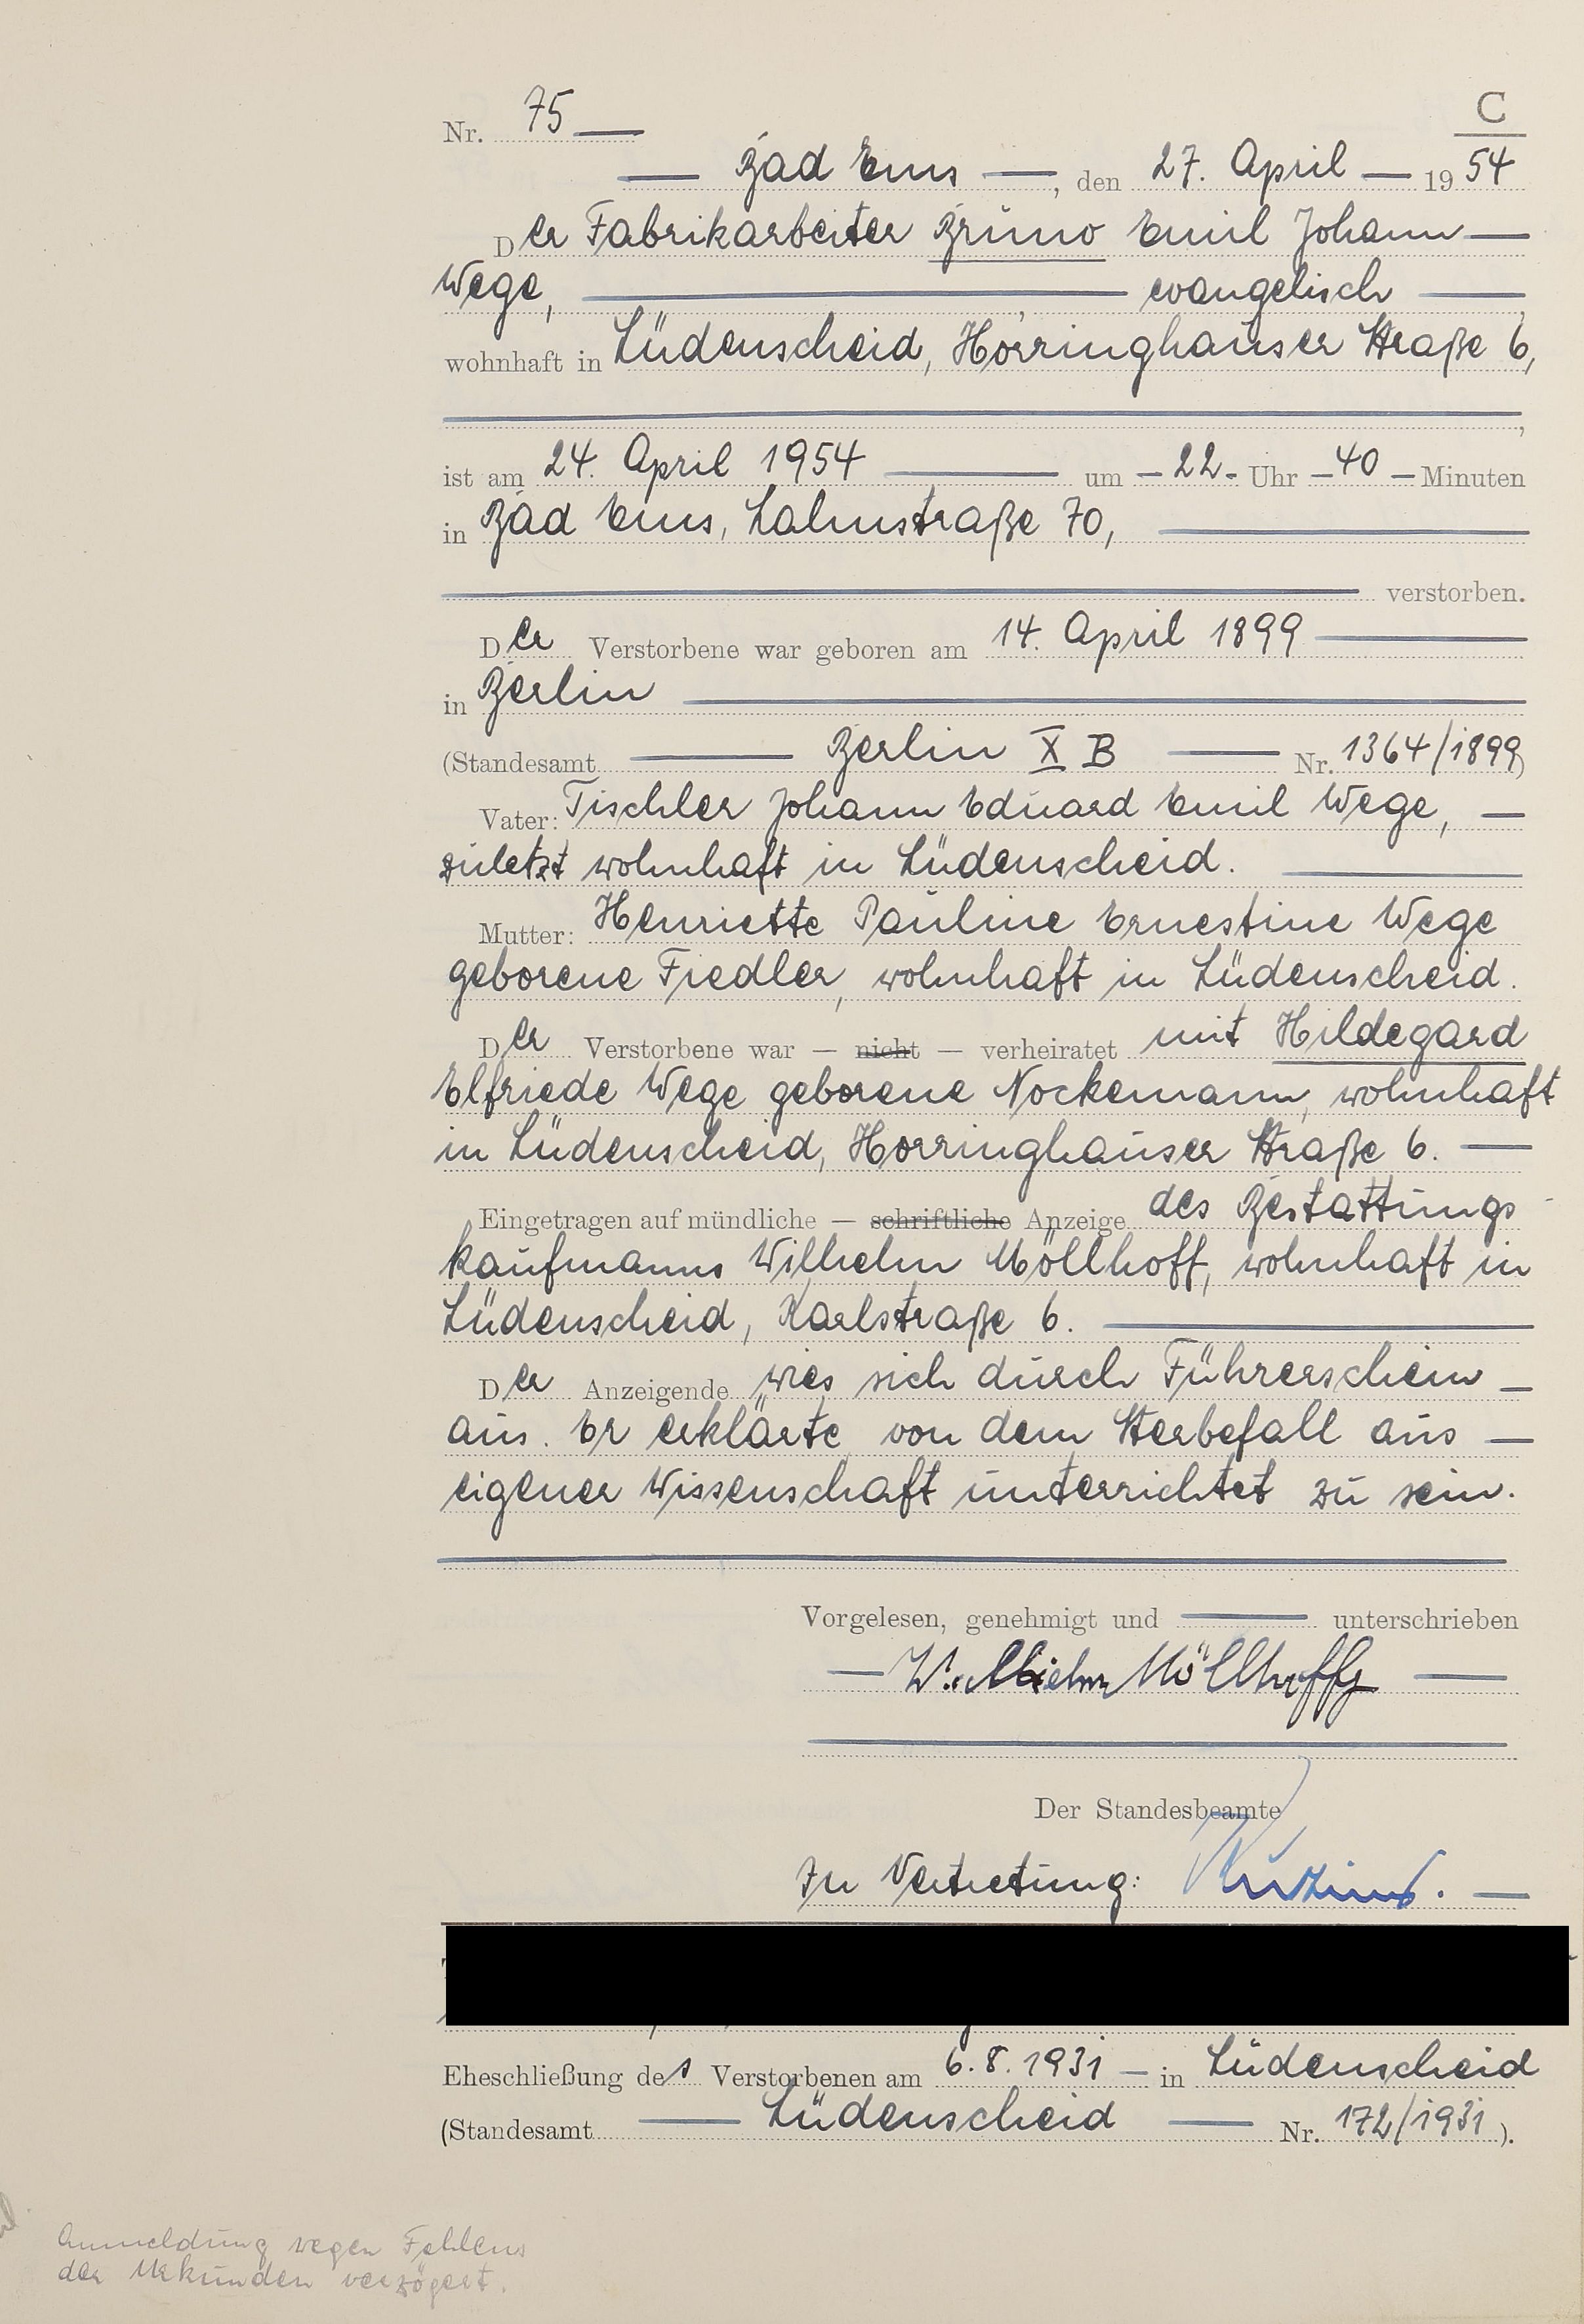 C
Nr. 75
Bad Ems, den 27. April 1954
Der Fabrikarbeiter Bruno Emil Johann
Wege, evangelisch,
wohnhaft in Lüdenscheid, Horringhauser Straße 6,
ist am 24. April 1954 um 22 Uhr 40 Minuten
in Bad Ems, Lahnstraße 70,
verstorben.
Der Verstorbene war geboren am 14. April 1899
in Berlin
(Standesamt Berlin X B Nr. 1364/1899)
Vater: Tischler Johann Eduard Emil Wege,
zuletzt wohnhaft in Lüdenscheid.
Mutter: Henriette Pauline Ernestine Wege
geborene Fiedler, wohnhaft in Lüdenscheid.
Der Verstorbene war — nicht — verheiratet mit Hildegard
Elfriede Wege geborene Nockemann, wohnhaft
in Lüdenscheid, Horringhauser Straße 6.
Eingetragen auf mündliche — schriftliche Anzeige des Bestattungs
kaufmanns Wilhelm Möllhoff, wohnhaft in
Lüdenscheid, Karlstraße 6.
Der Anzeigende wies sich durch Führerschein
aus. Er erklärte, von dem Sterbefall aus
eigener Wissenschaft unterrichtet zu sein.
Vorgelesen, genehmigt und unterschrieben
Wilhelm Möllhoff
Der Standesbeamte
In Vertretung:
Eheschließung des Verstorbenen am 6.8.1931 in Lüdenscheid
(Standesamt Lüdenscheid Nr. 172/1931).
Anmeldung wegen Fehlens
der Urkunden verzögert.